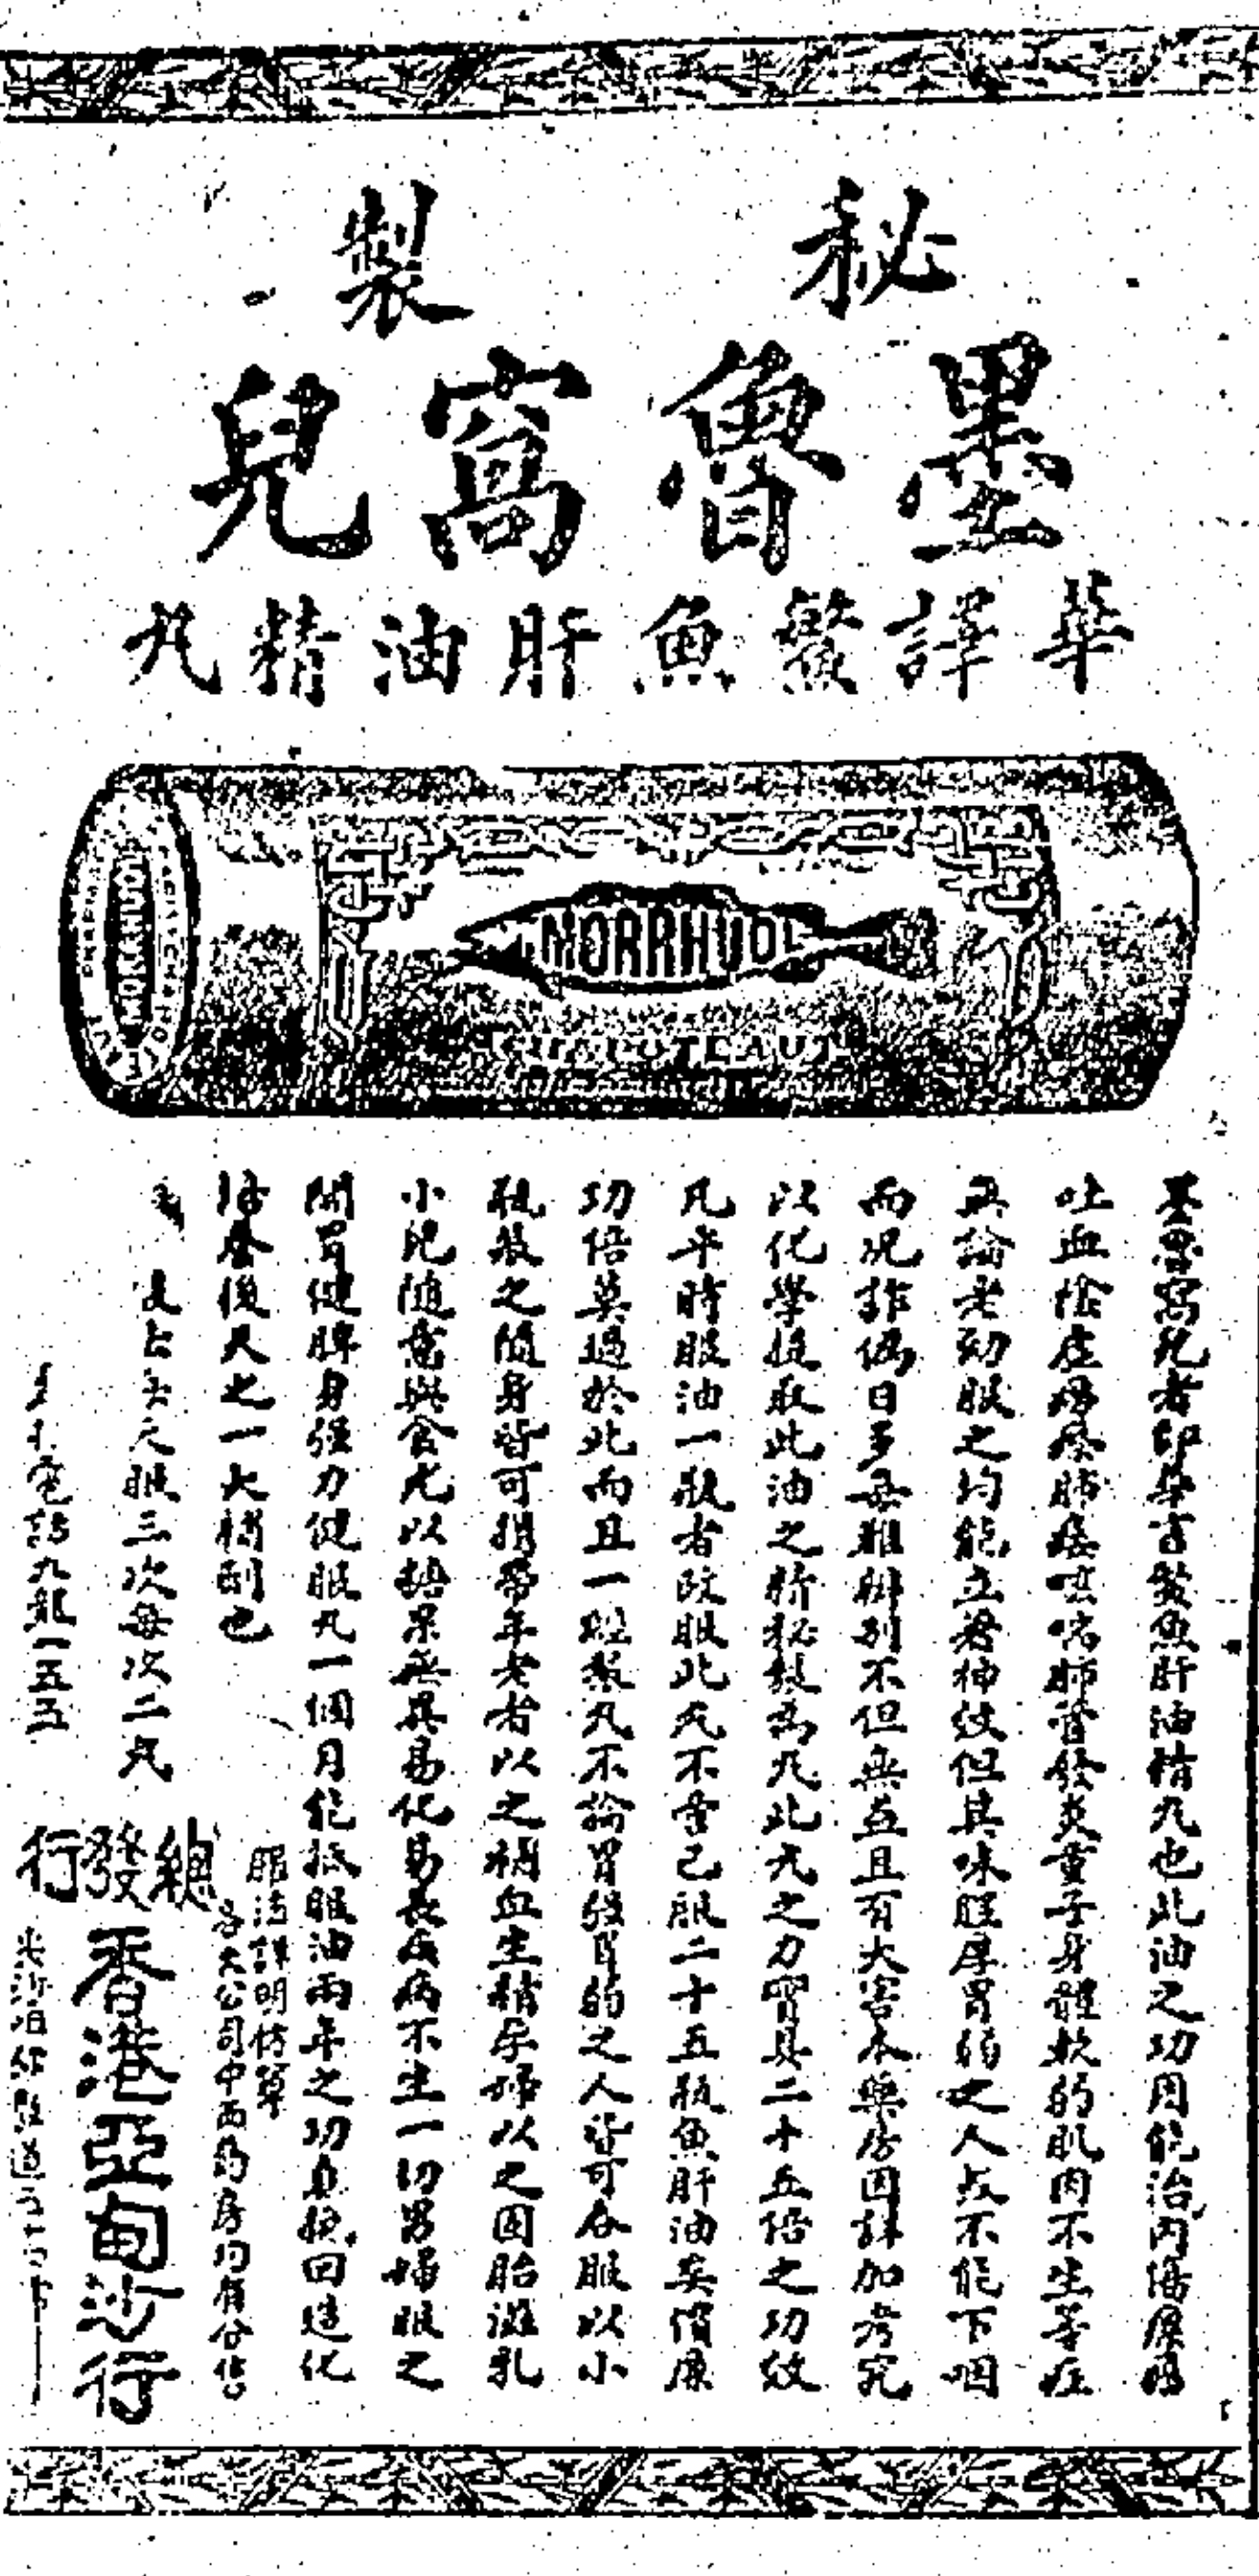 秘製
墨魯窩兒
華譯鰵魚肝油精丸
MORRHUOL
MORRHUOL
CHAPOTEAUT
墨魯窩兒者即華言鰵魚肝油精丸也此油之功用能治內傷
吐血陰虛癆瘵肺痿咳喘肺管發炎童子身體軟弱肌肉不生等症
無論老幼服之均能立著神效但其味腥厚胃弱之人每不能下咽
而況詐偽日多每難辦別不但無益且有大害本藥房因詳加考究
以化學提取此油之精秘製為丸此丸之力實具二十五倍之功效
凡平時服油一瓶者改服此丸不啻已服二十五瓶魚肝油矣價廉
功倍莫過於此而且一經製丸不論胃強胃弱之人皆可吞服以小
瓶裝之隨身皆可攜帶年老者以之補血生精孕婦以之固胎滋乳
小兒隨意與食尤以糖果無異易化易長疾病不生一切男婦服之
開胃健脾身強力健服丸一個月能抵服油兩年之功真挽回造化
培養後天之一大補劑也
服三次每次二丸
服法詳明仿單
各大公司中西藥房均有分售
總發行
香港亞甸沙行
電話九龍一五五